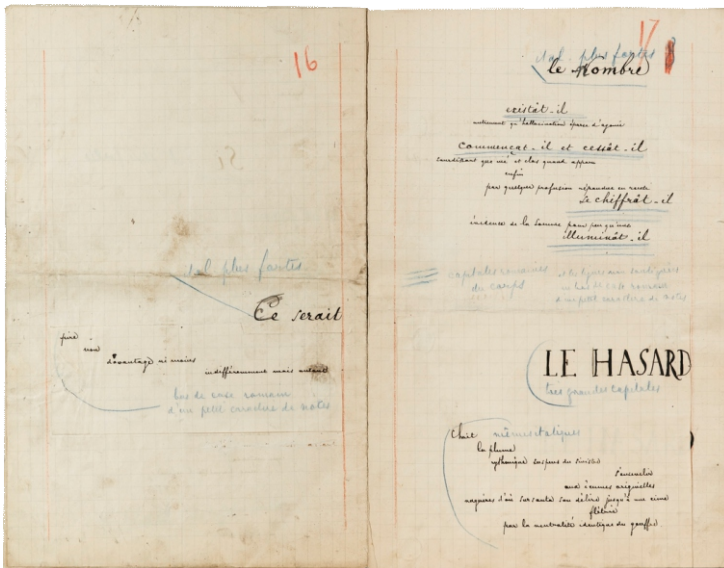 16
ital. plus fortes
Ce serait
pire
non
davantage ni moins
indifféremment mais autant
bas de casse romain
d'un petit caractère de notes
17
ital. plus fortes
le nombre
existât-il
autrement qu'hallucination éparse d'agonie
commençât-il et cessât-il
sourdant que nié et clos quand apparu
enfin
par quelque profusion répandue en rareté
se chiffrât-il
évidence de la somme pour peu qu'une
illuminât-il
capitales romaines
du corps
et les lignes
en bas de casse romain
d'un petit caractère de notes
LE HASARD
très grandes capitales
Choit
mêmes italiques
la plume
rythmique suspens du sinistre
s'ensevelir
aux écumes originelles
naguères d'où sursauta son délire jusqu'à une cime
flétrie
par la neutralité identique du gouffre